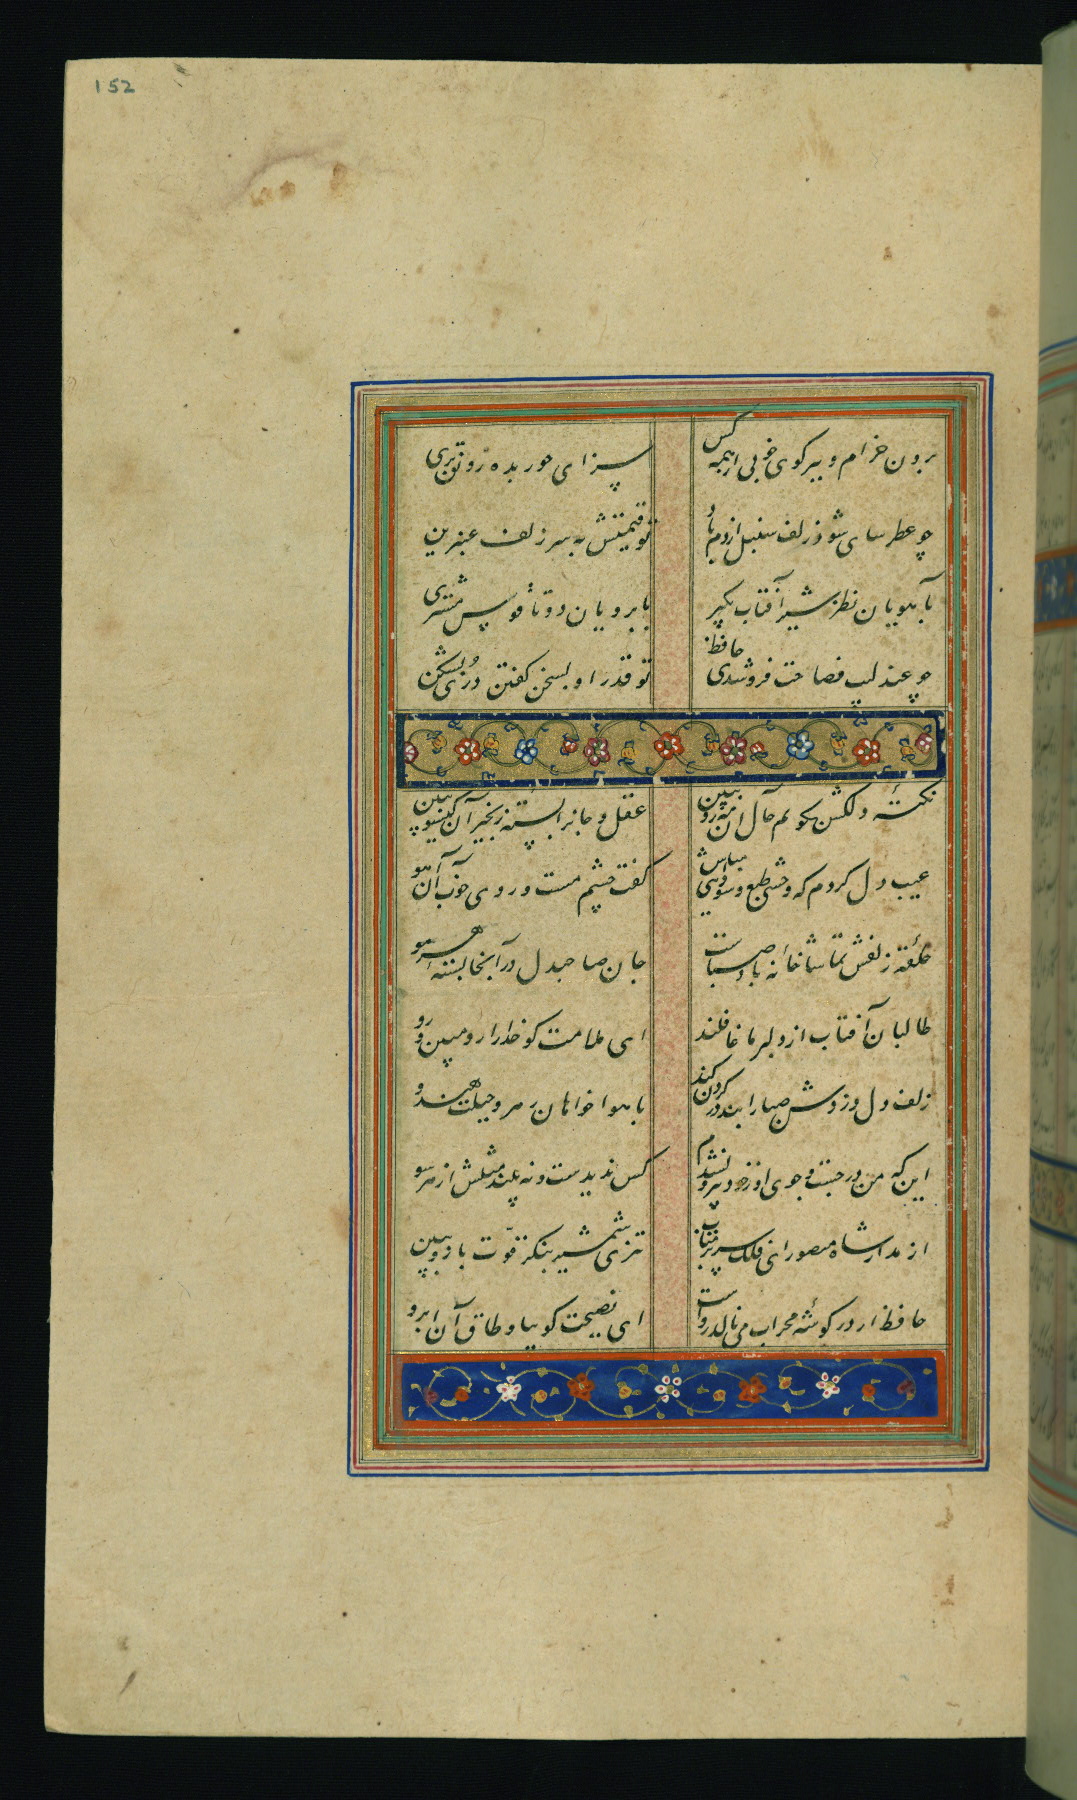 152
برون خرام و ببر کوی خوبی از همه کس
سزای حور بده رونق پری
چو عطر سای شود زلف سنبل از دم باد
تو قیمتش به سر زلف عنبرین
بآهویان نظر شیر آفتاب بگیر
بابرویان دوتا قوس مشتری
چو عندلیب فصاحت فروشدی حافظ
تو قدر او بسخن کفتن دری بشکن
نکتهٔ دلکش بکویم خال آن مه رو ببین
عقل و جانرا بستهٔ زنجیر آن کیسو ببین
عیب دل کردم که وحشی طبع و مباش
کفت چشم مست و روی خوب آن آهو
حلقهٔ زلفش تماشاخانهٔ باد صباست
جان صاحبدل در آنجا بسته هر مو
طالبان آفتاب از دلبر ما غافلند
ای ملامت کو خدارا رو مبین رو
زلف دل دزدش صبا را بند در کردن کند
با هواخواهان رهرو حیلت هندو
این که من در جست و جوی او ز خود بیرون شدم
کس ندیدست و نه بیند مثلش از هر سو
از مدار شاه منصور ای فلک سر بر متاب
تیزی شمشیر بنکر قوت بازو ببین
حافظ ار در کوشهٔ محراب می نالد رواست
ای نصیحت کو بیا و طاق آن ابرو